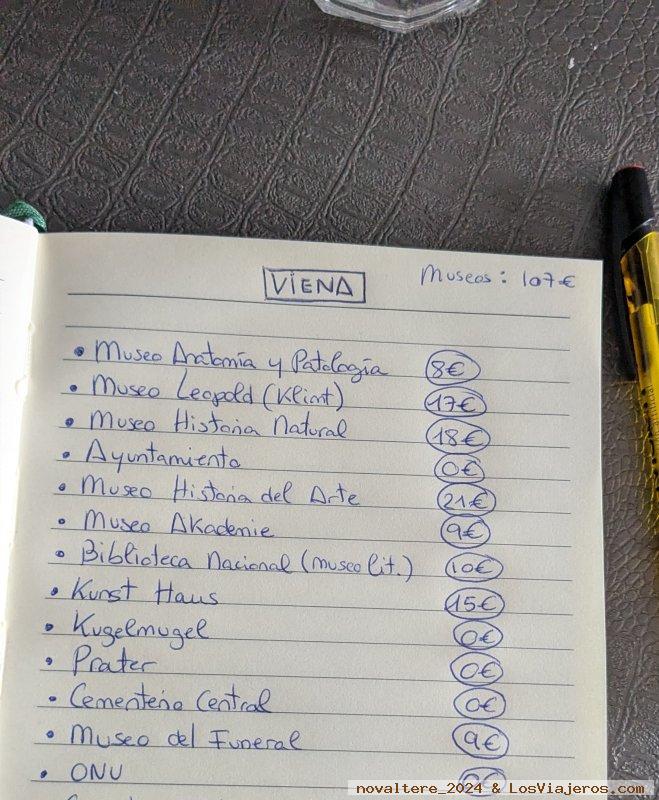 VIENA
Museos: 107€
• Museo Anatomía y Patología 8€
• Museo Leopold (Klimt) 17€
• Museo Historia Natural 18€
• Ayuntamiento 0€
• Museo Historia del Arte 21€
• Museo Akademie 9€
• Biblioteca Nacional (museo lit.) 10€
• Kunst Haus 15€
• Kugelmugel 0€
• Prater 0€
• Cementerio Central 0€
• Museo del Funeral 9€
• ONU 0€
novaltere_2024 & LosViajeros.com